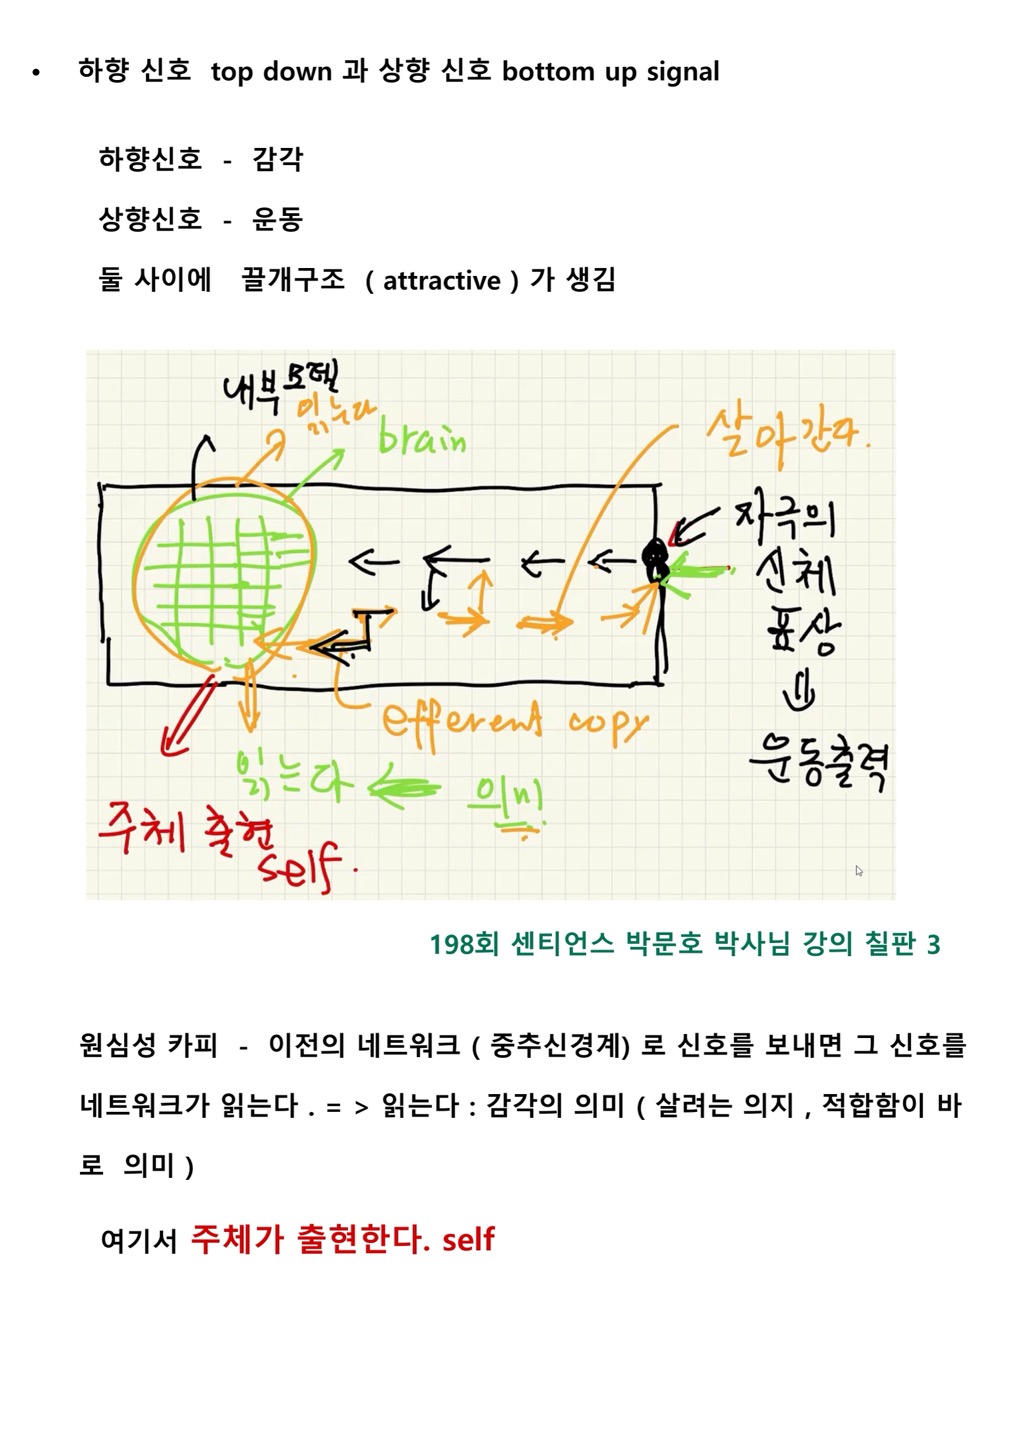 • 하향 신호 top down 과 상향 신호 bottom up signal
하향신호 - 감각
상향신호 - 운동
둘 사이에 끌개구조 ( attractive ) 가 생김
내부모델
읽는다
brain
살아간다.
자극의
신체
표상
⇓
운동출력
efferent copy
읽는다 ⇐ 의미
주체 출현
self.
198회 센티언스 박문호 박사님 강의 칠판 3
원심성 카피 - 이전의 네트워크 ( 중추신경계) 로 신호를 보내면 그 신호를
네트워크가 읽는다 . = > 읽는다 : 감각의 의미 ( 살려는 의지 , 적합함이 바
로 의미 )
여기서 주체가 출현한다. self